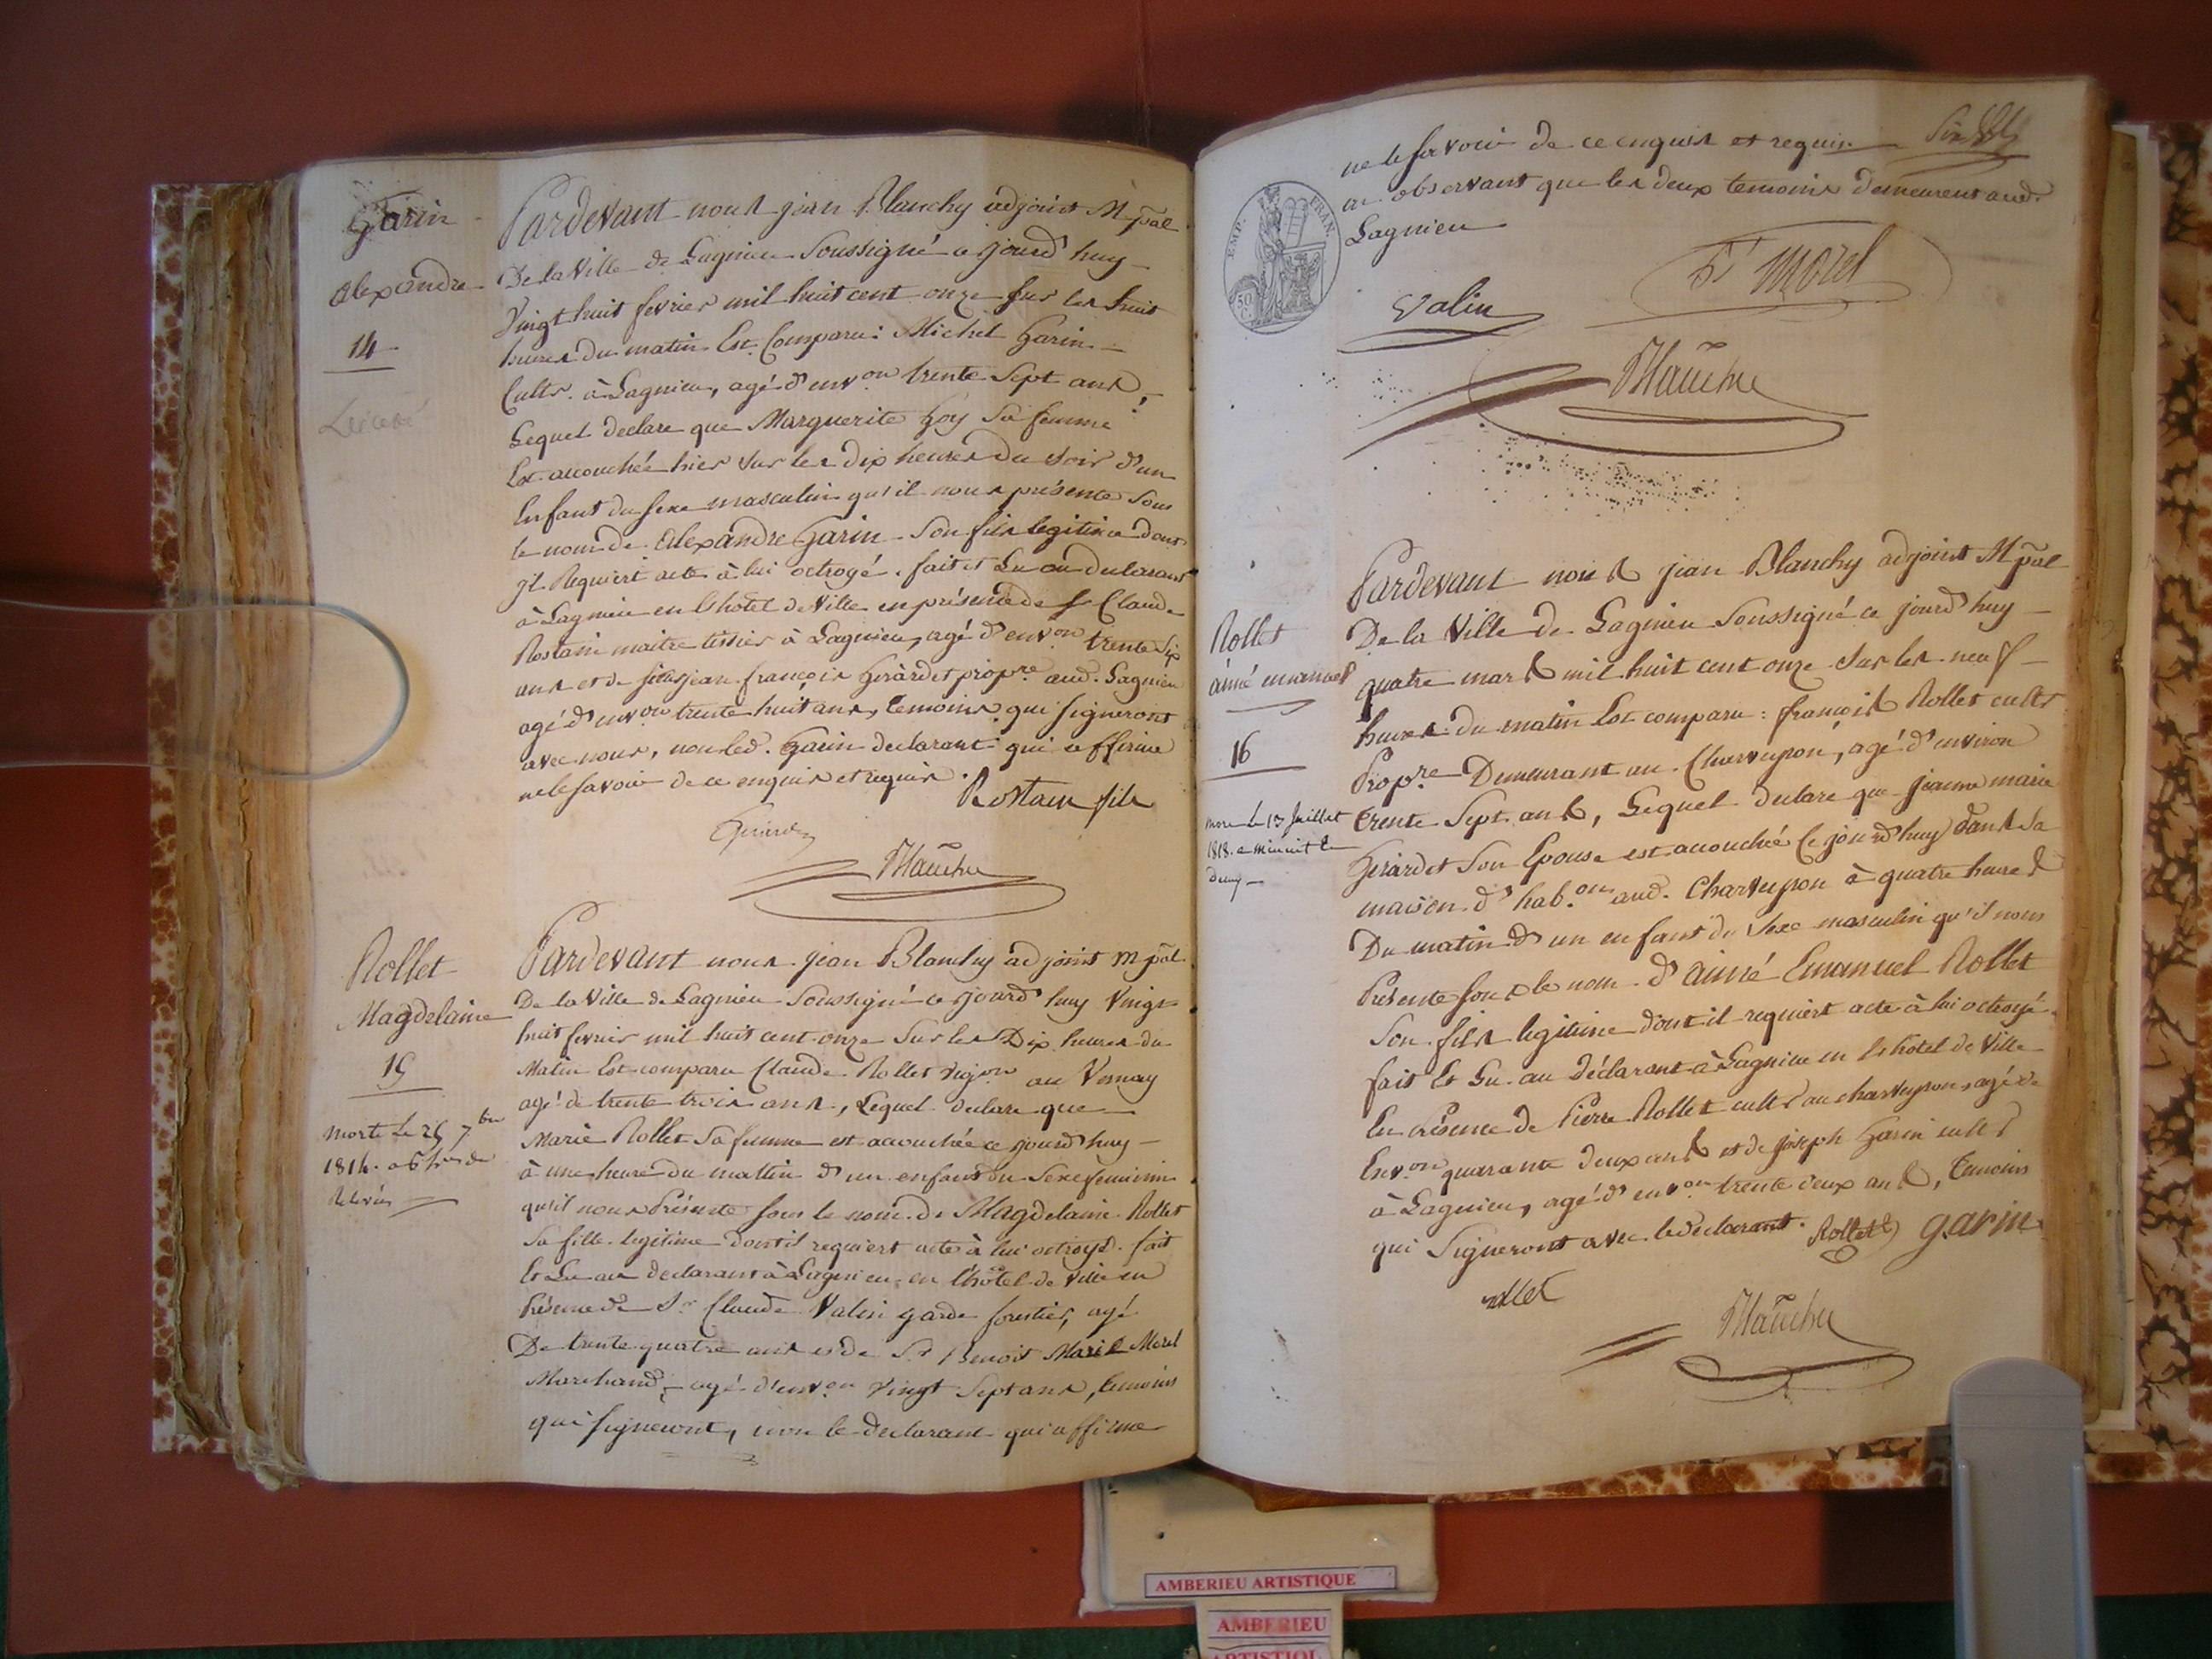 Garin
Alexandre
14
Pardevant nous jean Blanchy adjoint Mpal
De la Ville de Lagnieu Soussigné ce jourd'huy
Vingt huit fevrier mil huit cent onze sur les huit
heures du matin Est Comparu: Michel Garin
Cultr. à Lagnieu, agé d'env.on trente Sept ans,
Lequel declare que Marguerite Goy Sa femme
Est accouchée hier sur les dix heures du soir d'un
Enfant du sexe masculin qu'il nous présente Sous
le nom de Alexandre Garin Son fils legitime dont
il Requiert acte à lui octroyé. fait et Lu au declarant
à Lagnieu en l'hôtel de Ville en présence de Sr Claude
Rostain maitre tissier à Lagnieu, agé d'env.on trente six
ans et de jean françois Girardet prop.re aud. Lagnieu
agé d'env.on trente huit ans, temoins qui signeront
avec nous, non led. Garin declarant qui affirme
ne le savoir de ce enquis et requis.
Rostain fils
Blanchy
Rollet
Magdelaine
15
morte le 25 7bre
1814. a 6 hres de
Relevée
Pardevant nous jean Blanchy adjoint Mpal
De la Ville de Lagnieu Soussigné ce jourd'huy Vingt
huit fevrier mil huit cent onze Sur les Dix heures du
Matin Est comparu Claude Rollet vign.on au Vernay
agé de trente trois ans, Lequel declare que
Marie Rollet Sa femme est accouchée ce jourd'huy
à une heure du mattin d'un enfant du Sexe feminin
qu'il nous Présente sous le nom de Magdelaine Rollet
Sa fille legitime dont il requiert acte à lui octroyé. fait
Et Lu au declarant à Lagnieu en l'hôtel de Ville en
Présence de Sr Claude Valin garde forestier, agé
De trente quatre ans et de Sr Benoit Marie Morel
Marchand, agé d'env.on vingt Sept ans, temoins
qui signeront, non le declarant qui affirme
ne le savoir de ce enquis et requis
en observant que les deux temoins demeurent aud.
Lagnieu
EMP. FRAN.
50
Valin
Bt Morel
Blanchy
Rollet
aimé emanuel
16
mort le 13 Juillet
1818. a minuit &
demy
Pardevant nous jean Blanchy adjoint Mpal
De la Ville de Lagnieu Soussigné ce jourd'huy
quatre mars mil huit cent onze sur les neuf
heures du matin Est comparu: françois Rollet cultr
Prop.re Demeurant au Charveyron, agé d'environ
trente Sept ans, Lequel declare que jeanne marie
Girardet Son Epouse est accouchée ce jourd'huy dans sa
maison d'hab.on aud. Charveyron à quatre heures
Du matin d'un enfant du Sexe masculin qu'il nous
Présente sous le nom d'aimé Emanuel Rollet
Son fils legitime dont il requiert acte à lui octroyé.
fait Et Lu au déclarant à Lagnieu en l'hôtel de Ville
En Présence de Pierre Rollet cultr au charveyron, agé de
Env.on quarante deux ans et de joseph Garin cultr
à Lagnieu, agé d'env.on trente deux ans, temoins
qui Signeront avec le declarant. Rollet garin
rollet
Blanchy
AMBERIEU ARTISTIQUE
AMBERIEU
ARTISTIQ